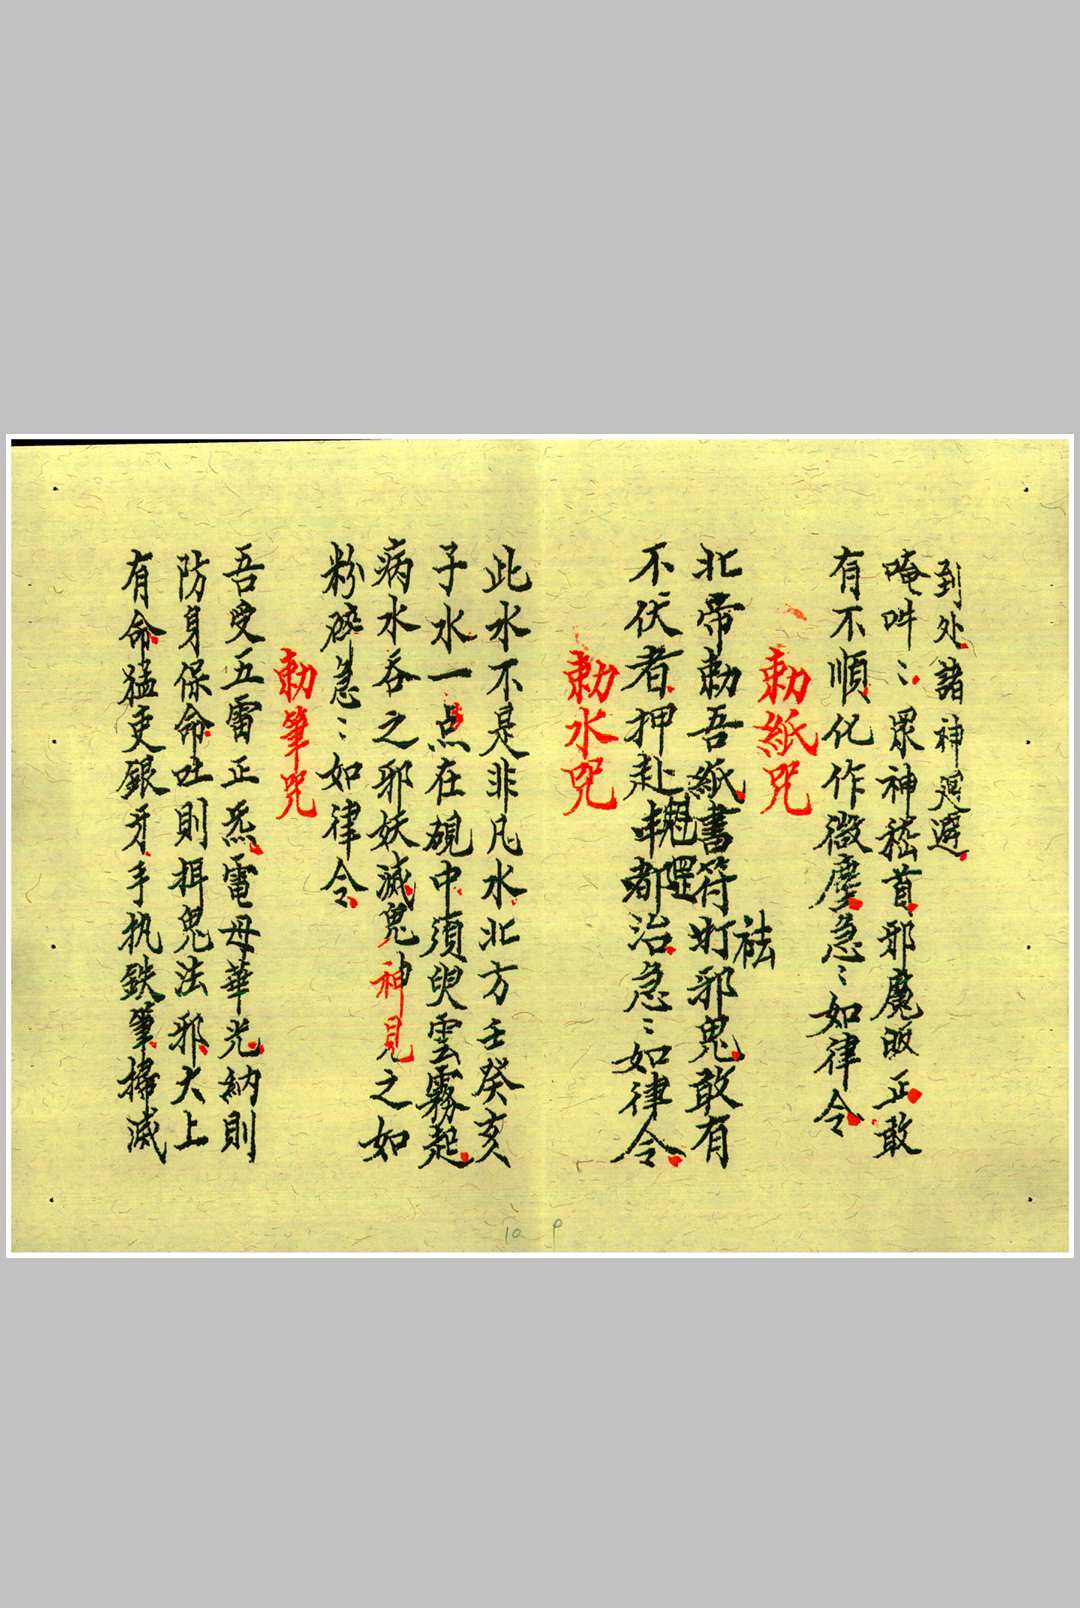 到处諸神迴避
唵吽〻眾神嵇首邪魔皈正敢
有不順化作微塵急〻如律令
勅紙咒
北帝勅吾紙書符打邪鬼敢有
不伏者押赴酆都治急〻如律令
勅水咒
此水不是非凡水北方壬癸亥
子水一点在硯中須臾雲霧起
病水吞之邪妖滅鬼神見之如
粉碎急〻如律令
勅筆咒
吾受五雷正炁電母華光納則
防身保命吐則捍鬼法邪大上
有命猛吏銀牙手执鉄筆掃滅
10 9